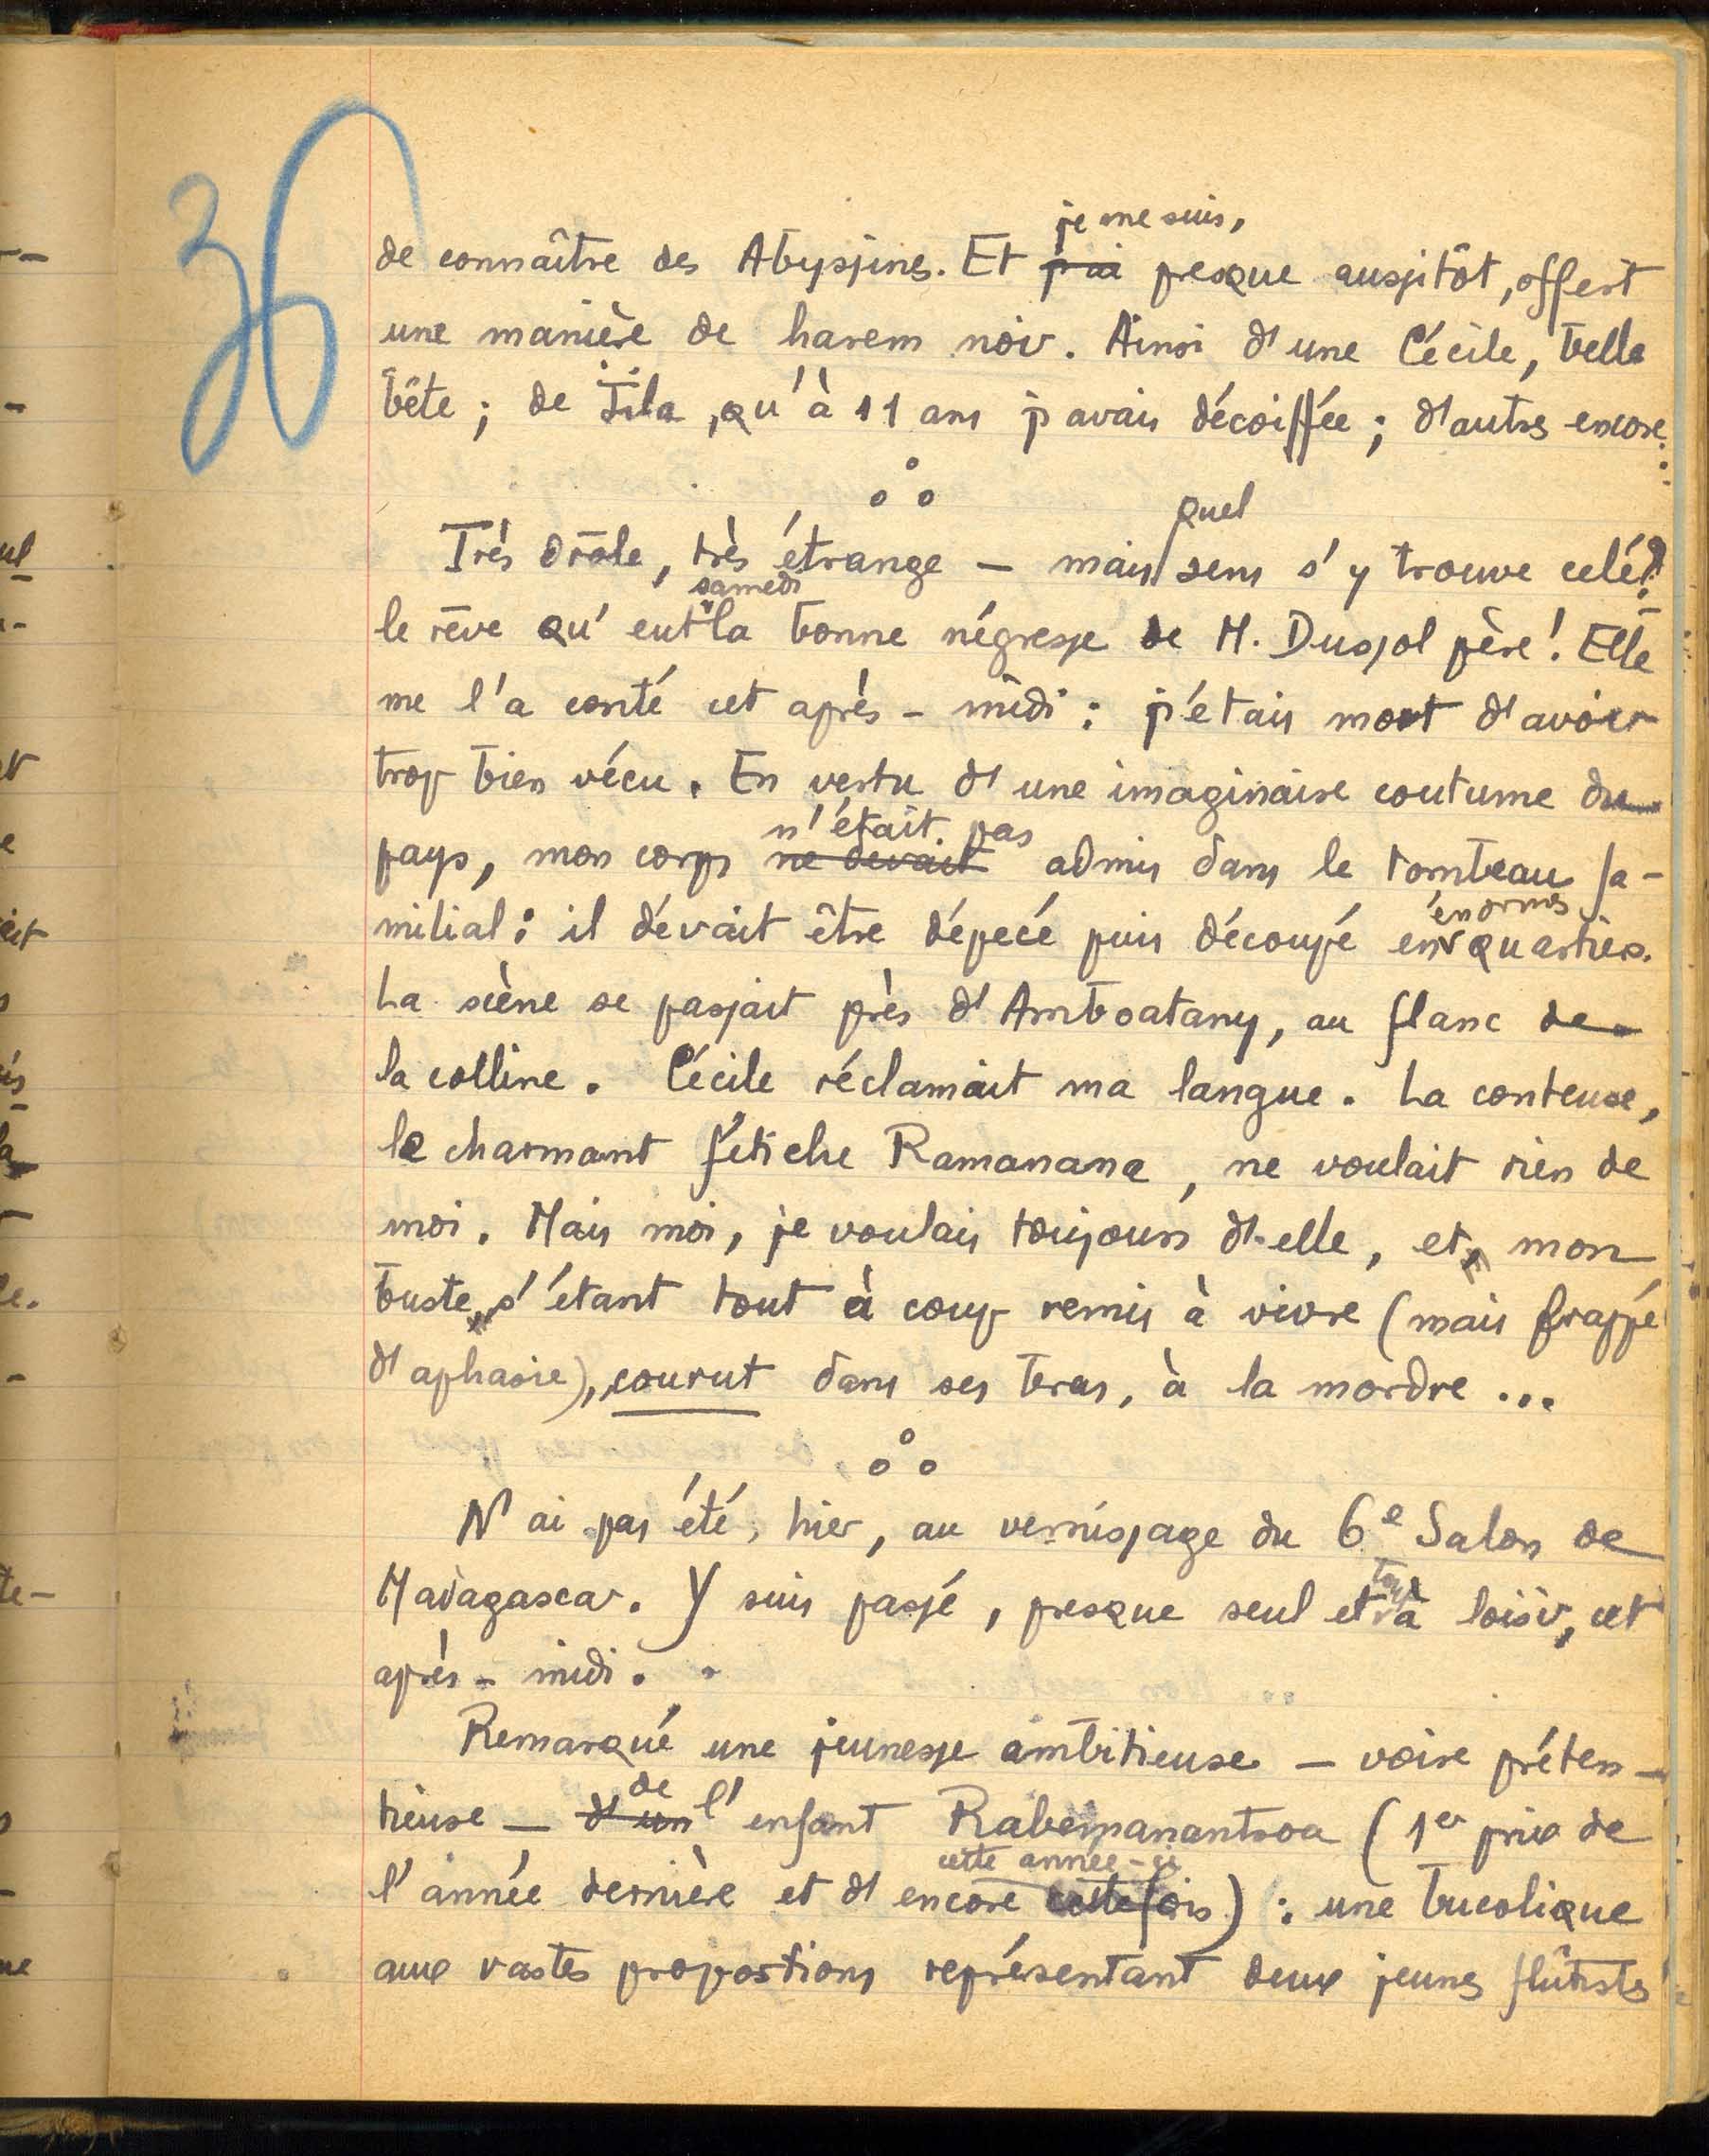 36
de connaître des Abyssines. Et j'ai je me suis, presque aussitôt, offert
une manière de harem noir. Ainsi d'une Cécile, belle
bête ; de Jila, qu'à 11 ans j'avais décoiffée ; d'autres encore...
Très drôle, très étrange — mais quel sens s'y trouve celé ? —
le rêve qu'eut samedi la bonne négresse de M. Dussol père ! Elle
me l'a conté cet après-midi : j'étais mort d'avoir
trop bien vécu. En vertu d'une imaginaire coutume du
pays, mon corps ne devait n'était pas admis dans le tombeau fa-
milial : il devait être dépecé puis découpé en énormes quartiers.
La scène se passait près d'Amboatany, au flanc de
la colline. Cécile réclamait ma langue. La conteuse,
le charmant fétiche Ramanana, ne voulait rien de
moi. Mais moi, je voulais toujours d'elle, et, mon
buste, s'étant tout à coup remis à vivre (mais frappé
d'aphasie), courut dans ses bras, à la mordre...
N'ai pas été, hier, au vernissage du 6e Salon de
Madagascar. Y suis passé, presque seul et tout à loisir, cet
après-midi.
Remarqué une jeunesse ambitieuse — voire préten-
tieuse — d'un de l'enfant Rabemanantsoa (1er prix de
l'année dernière et d'encore cette fois cette année-ci) : une bucolique
aux vastes proportions représentant deux jeunes flûtistes